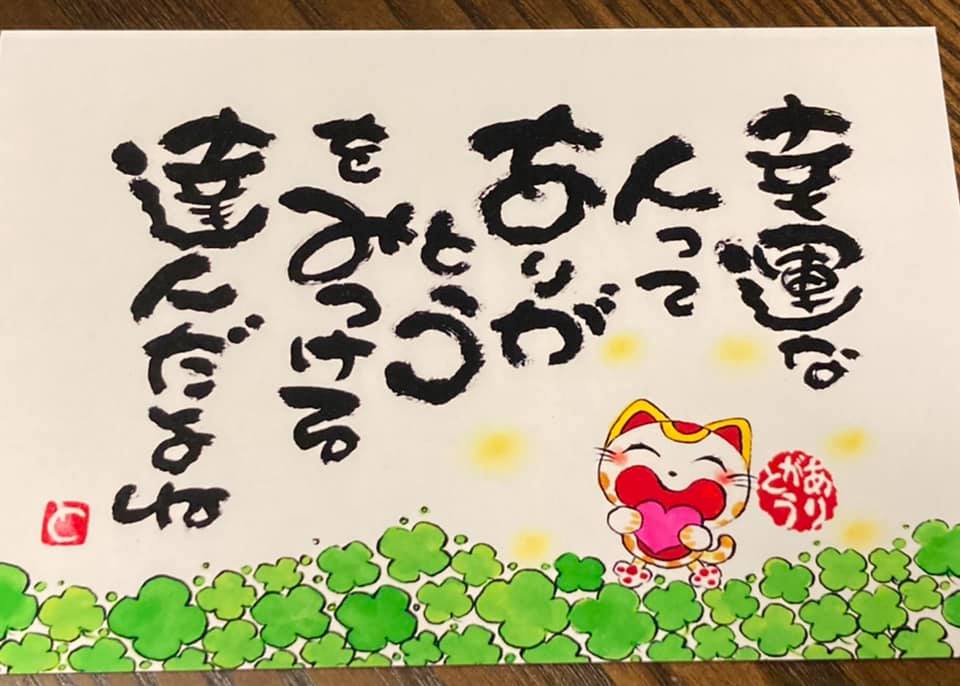 幸運な
人って
ありが
とう
をみつける
達人だよね
ありがとう
と